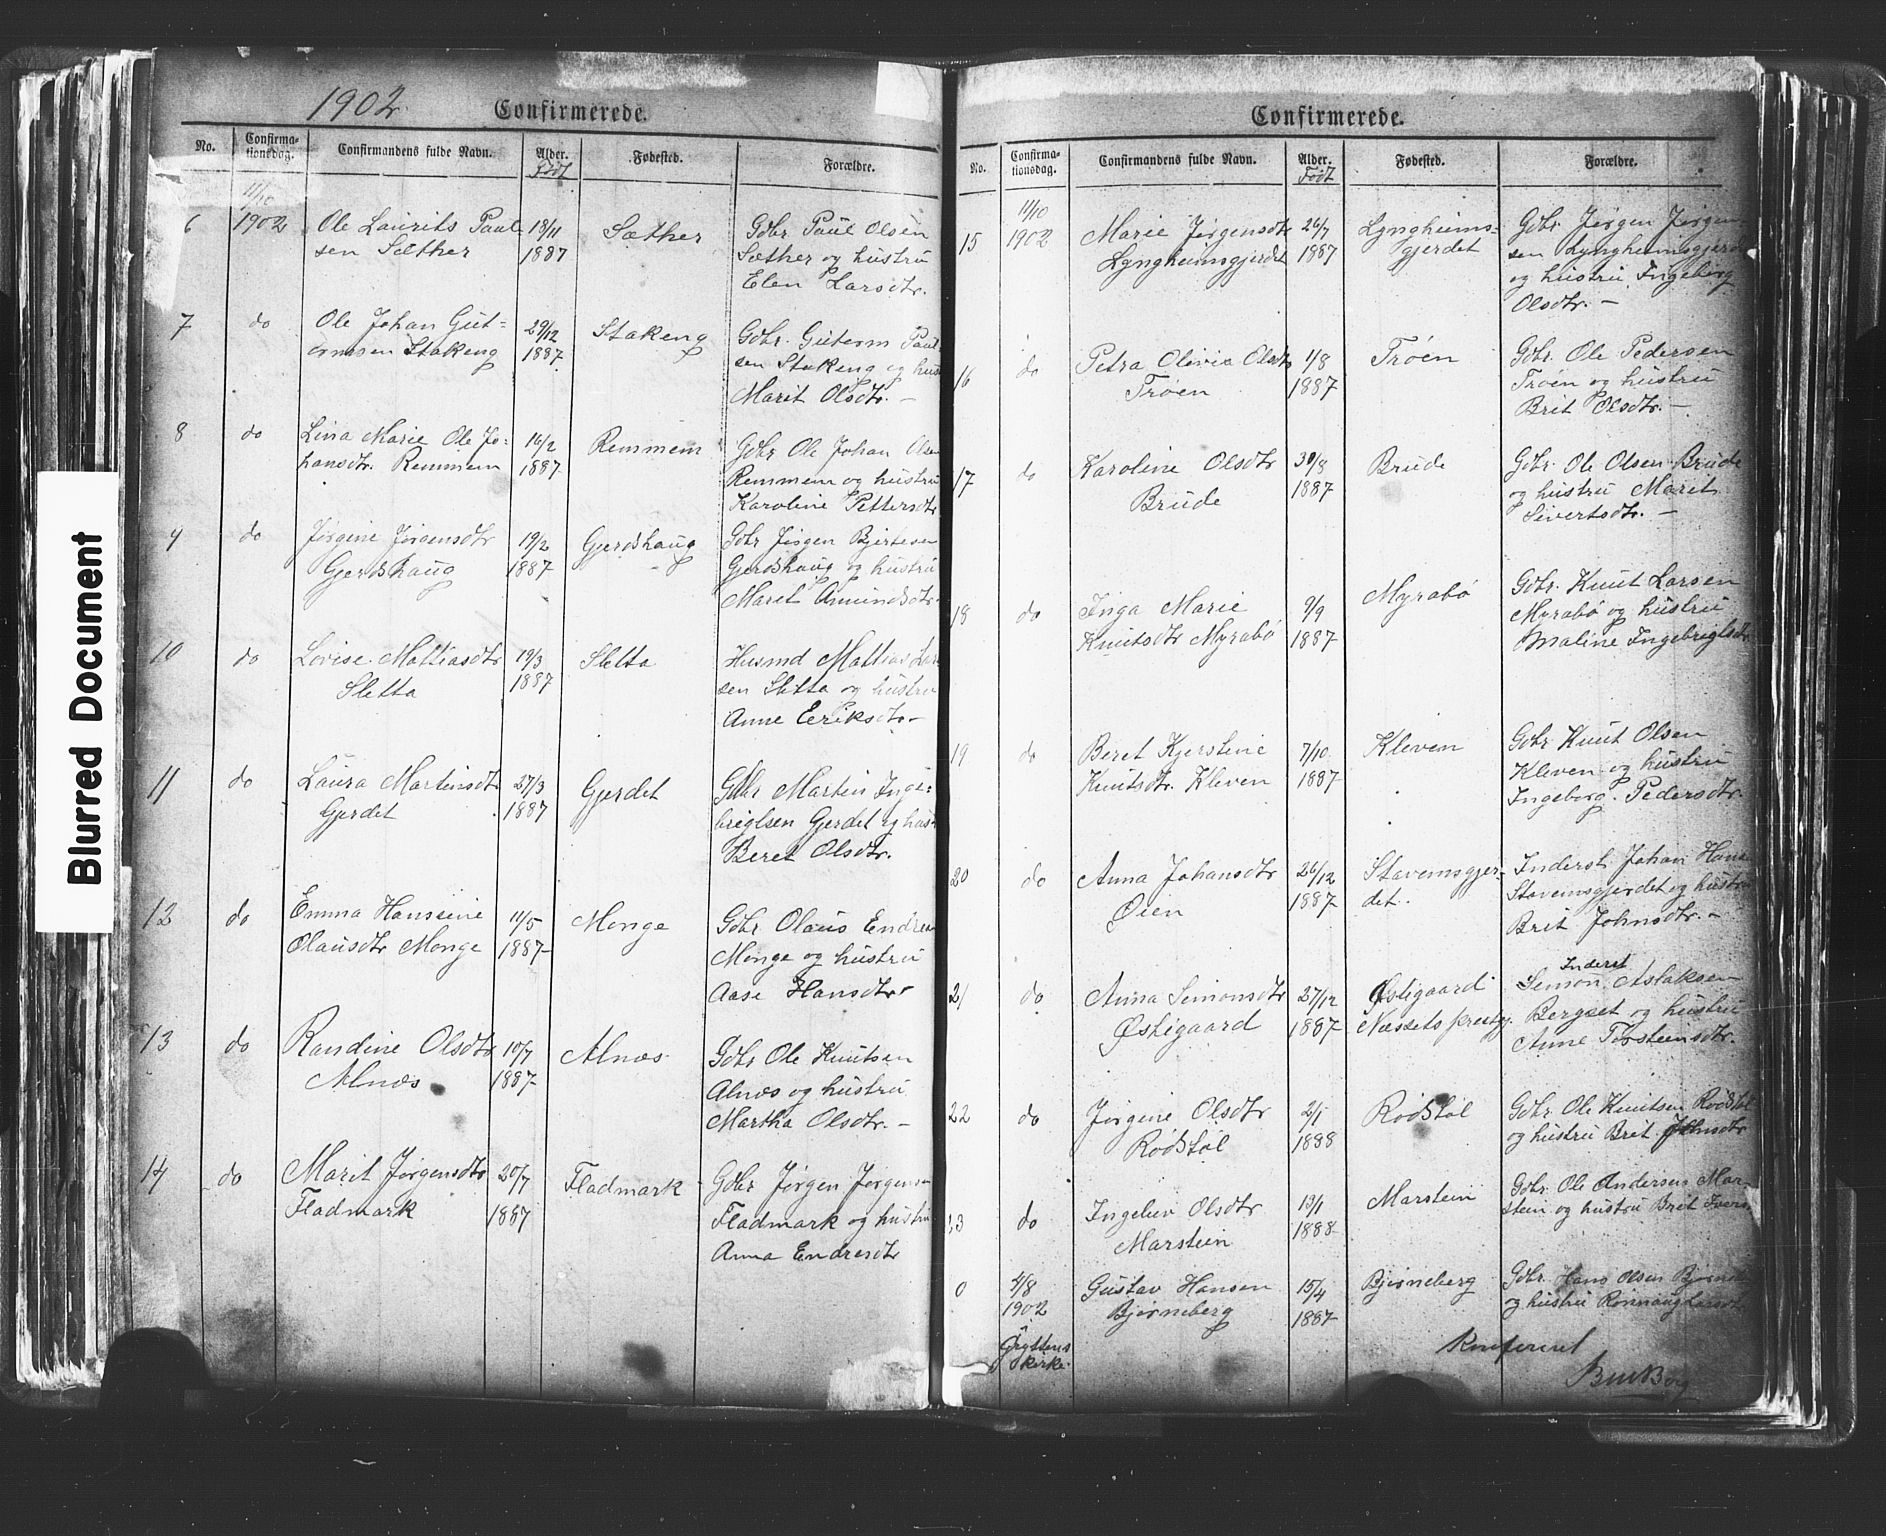 Blurred Document
1902
Confirmerede.
No.
Confirma-
tionsdag.
Confirmandens fulde Navn.
Alder.
Født
Fødested.
Forældre.
11/10
6 1902 Ole Laurits Paul 18/11 Sæther Gdbr Paul Olsen
sen Sæther 1887 Sæther og hustru
Elen Larsdtr.
7 do Ole Johan Gut- 29/12 Stakeng Gdbr. Guterm Paul
ormsen Stakeng 1887 sen Stakeng og hus
Marit Olsdtr. –
8 do Lina Marie Ole Jo- 16/2 Remmem Gdbr Ole Johan Olsen
hansdtr. Remmem 1887 Remmem og hustru
Karoline Pettersdtr
9 do Jørgine Jørgensdtr 19/2 Gjerdshaug Gdbr Jørgen
Gjerdshaug 1887 Gjerdshaug og hustru
Marit Amundsdtr.
10 do Lovise Mattiasdtr 19/3 Sletta Husmd Mattias Lar
Sletta 1887 sen Sletta og hustru
Anne Eriksdtr –
11 do Laura Martinsdtr 27/3 Gjerdet Gdbr Martin Inge-
Gjerdet 1887 briglsen Gjerdet og hus
Beret Olsdtr.
12 do Emma Hansine 11/5 Monge Gdbr Olaus Endre
Olausdtr Monge 1887 Monge og hustru
Aase Hansdtr
13 do Randine Olsdtr 10/7 Alnæs Gdbr Ole Knutsen
Alnæs 1887 Alnæs og hustru
Martha Olsdtr. –
14 do Marit Jørgensdtr 20/7 Fladmark Gdbr Jørgen Jørgensen
Fladmark 1887 Fladmark og hustru
Anna Endresdtr
Confirmerede.
No.
Confirma-
tionsdag.
Confirmandens fulde Navn.
Alder.
Født
Fødested.
Forældre.
11/10
15 1902 Marie Jørgensdtr 26/7 Lyngheims- Gdbr. Jørgen Jørgen
Lyngheimsgjerdet 1887 gjerdet sen Lyngheimsgjerd
og hustru Ingeborg
Olsdtr. –
16 do Petra Olivia Olsdtr 1/8 Trøen Gdbr. Ole Pedersen
Trøen 1887 Trøen og hustru
Brit Olsdtr. –
17 do Karoline Olsdtr 30/8 Brude Gdbr. Ole Olsen Brude
Brude 1887 og hustru Marit
Sivertsdtr. –
18 do Inga Marie 9/9 Myrabø Gdbr. Knut Larsen
Knutsdtr Myrabø 1887 Myrabø og hustru
Maline Ingebriglsdtr
19 do Beret Kjerstine 7/10 Kleven Gdbr Knut Olsen
Knutsdtr. Kleven 1887 Kleven og hustru
Ingeborg Pedersdtr.
20 do Anna Johansdtr 26/12 Stavemsgjer- Inderst Johan Hans
Øien 1887 det. Stavemsgjerdet og hustru
Brit Johnsdtr. –
Inderst
21 do Anna Simonsdtr 27/12 Østigaard Simon Aslaksen
Østigaard 1887 Næssets prestg. Bergset og hustru
Anne Torsteinsdtr.
22 do Jørgine Olsdtr 2/1 Rødstøl Gdbr. Ole Knutsen Rødstøl
Rødstøl 1888 og hustru Brit Johnsdtr
23 do Ingeliv Olsdtr 13/1 Marstein Gdbr. Ole Andersen Mar-
Marstein 1888 stein og hustru Brit Ivers
0 4/8 Gustav Hansen 15/4 Bjørneberg Gdbr. Hans Olsen Bjørne
1902 Bjørneberg 1887 og hustru Rønnaug Larsdtr
Gryttens
kirke.
Konfereret